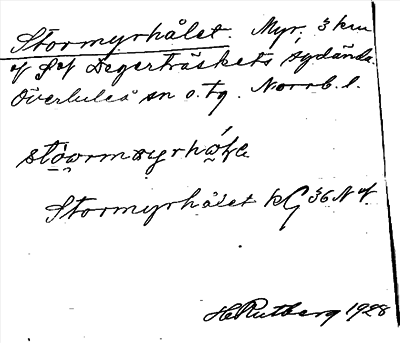 Stormyrhålet. Myr, 3 km
af S af Degerträskets sydända
Överluleå sn o. tg. Norrb. l.
Stormyrhålet kG 36 N af.
H Rutberg 1928